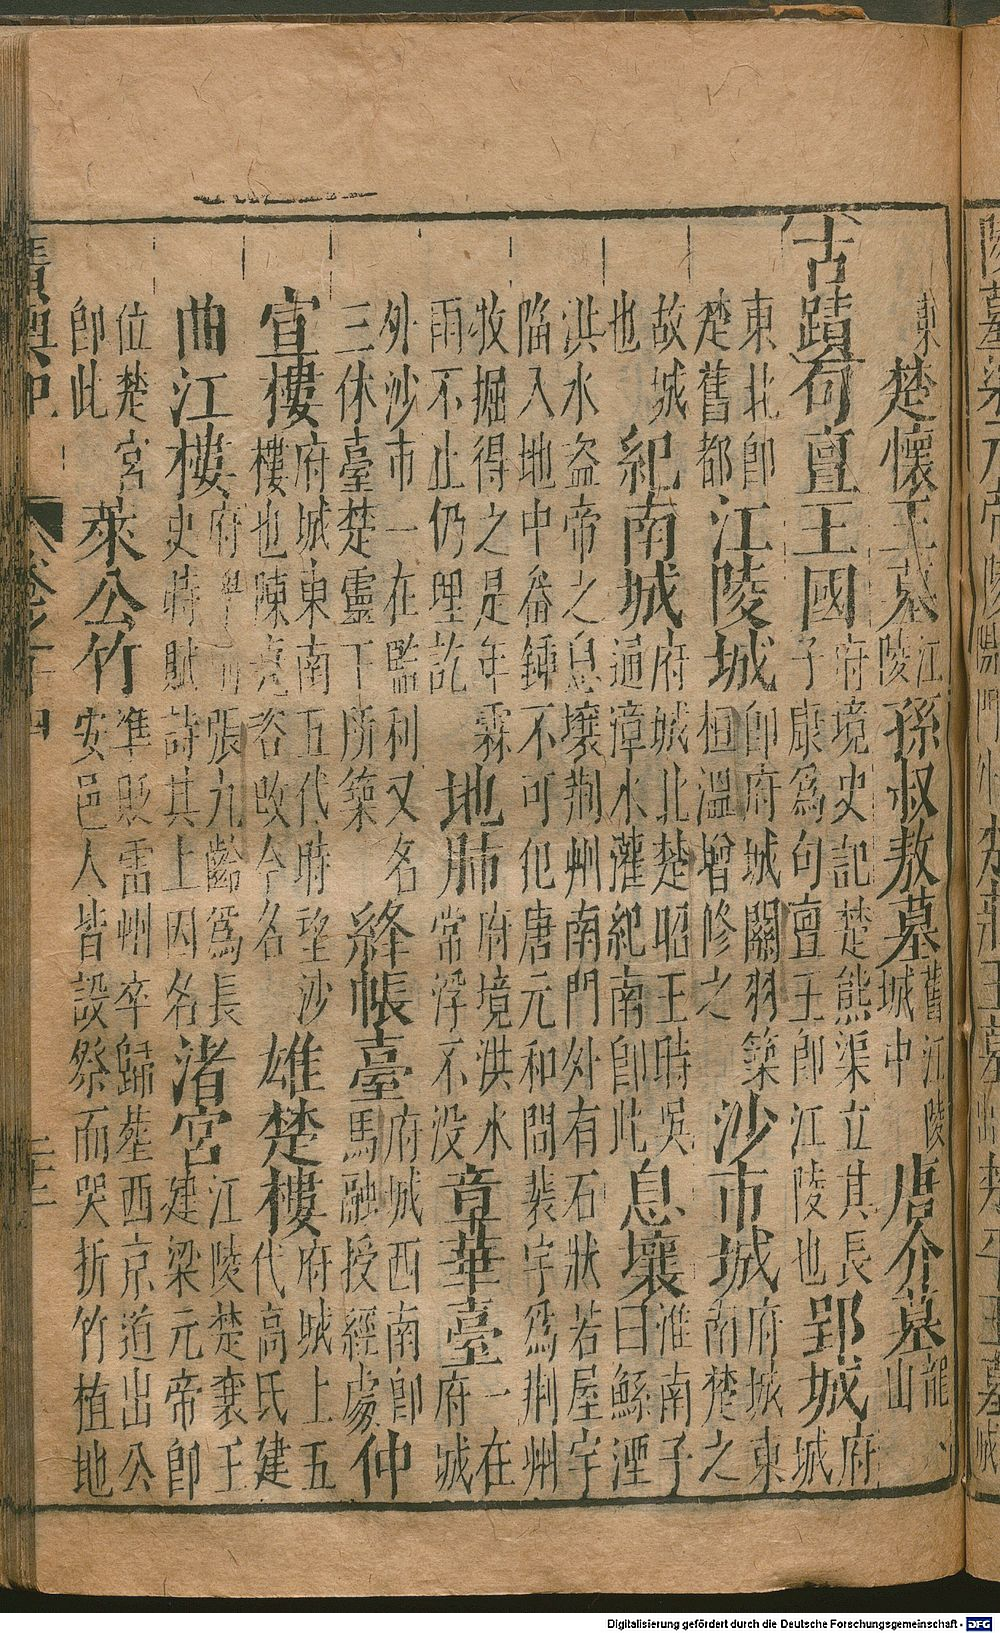 東楚懷王墓江陵孫叔敖墓舊江陵城中唐介墓龍山
古蹟句亶王國府境史記楚熊渠立其長子康為句亶王即江陵也郢城府城
東北即楚舊都江陵城即府城關羽築桓溫增修之沙市城府城東南楚之
故城也紀南城府城北楚昭王時吳通漳水灌紀南即此息壤淮南子曰鯀湮
洪水盜帝之息壤荆州南門外有石狀若屋宇陷入地中畚鍤不可犯唐元和間裴宇為荆州
牧掘得之是年霖雨不止仍埋訖地肺府境洪水常浮不没章華臺一在府城
外沙市一在監利又名三休臺楚靈王所築絳帳臺府城西南即馬融授經處仲
宣樓府城東南五代時望沙樓也陳堯咨改今名雄楚樓府城上五代高氏建
曲江樓府學前張九齡為長史時賦詩其上因名渚宮江陵楚襄王建梁元帝即
位楚宮即此萊公竹準貶雷州卒歸塟西京道出公安邑人皆設祭而哭折竹植地
廣輿記 卷之十四
Digitalisierung gefördert durch die Deutsche Forschungsgemeinschaft - DFG